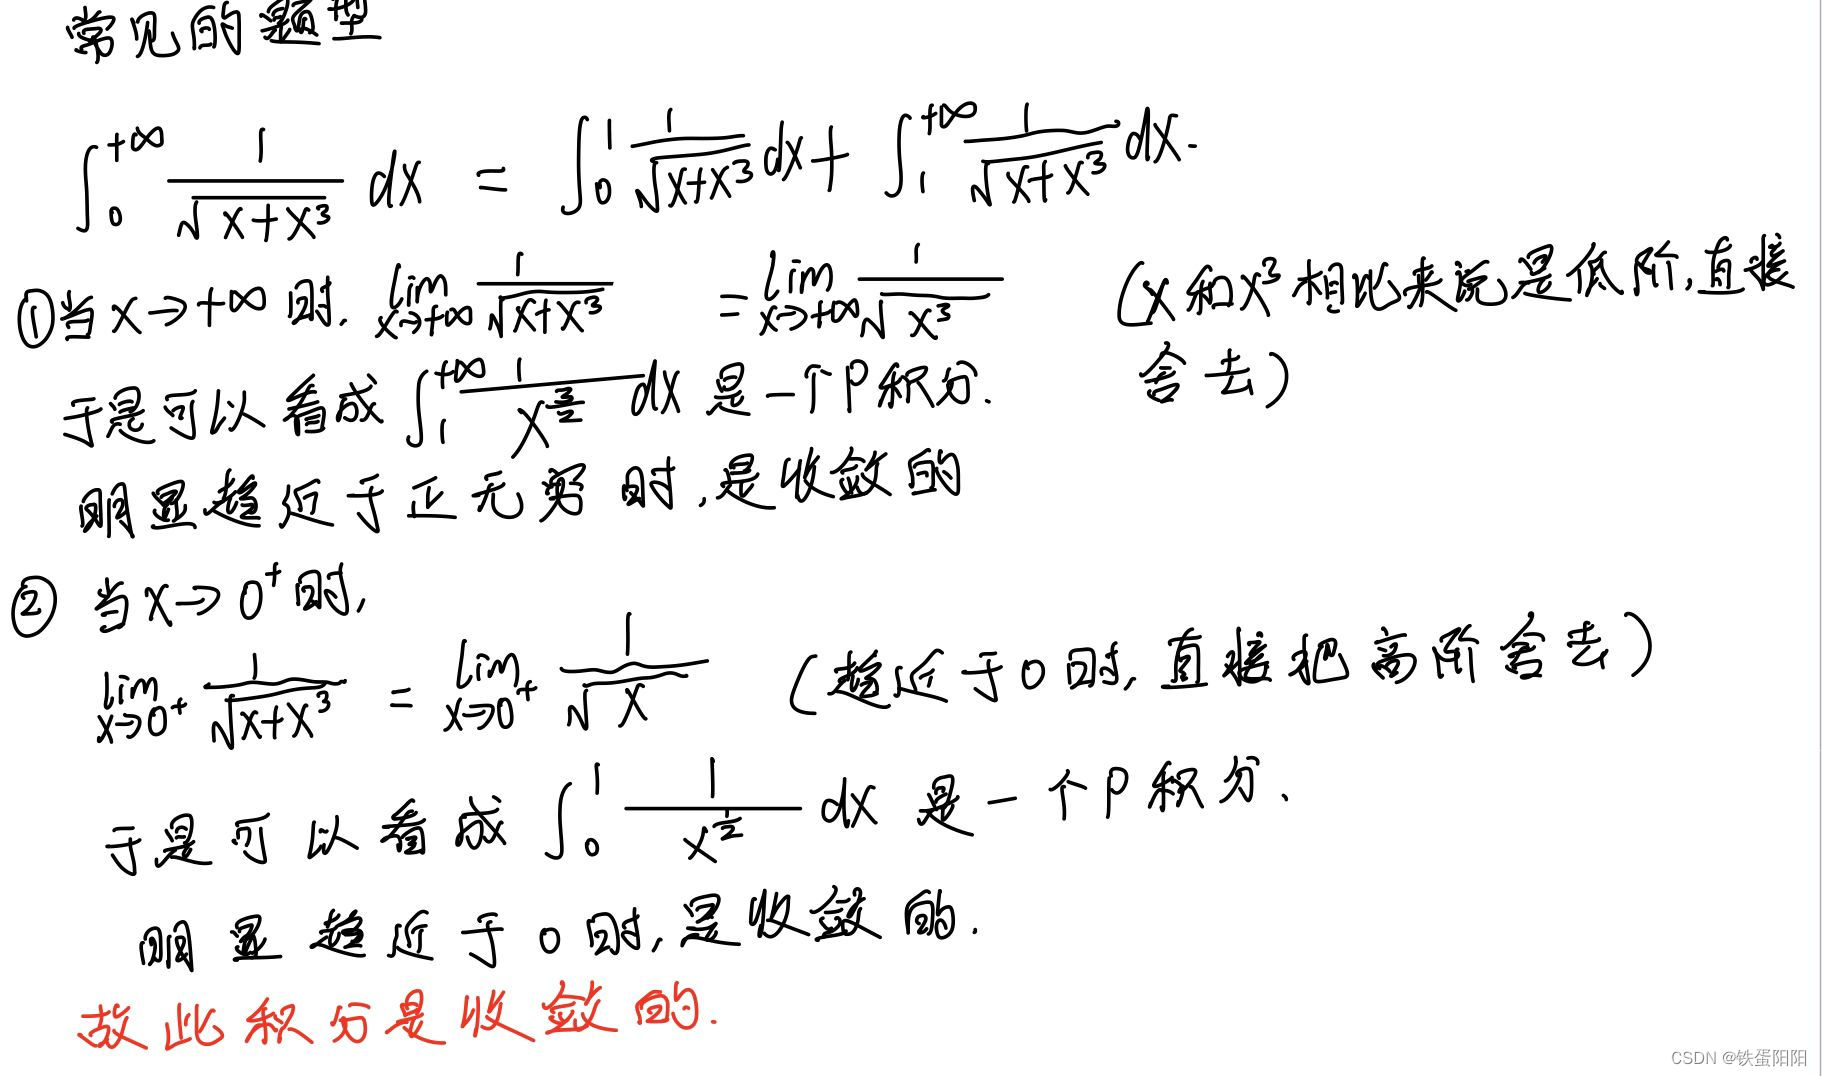 常见的题型
∫₀^{+∞} 1/√(x+x³) dx = ∫₀¹ 1/√(x+x³) dx + ∫₁^{+∞} 1/√(x+x³) dx.
①当 x→+∞ 时. lim_{x→+∞} 1/√(x+x³) = lim_{x→+∞} 1/√(x³) (x和x³相比来说是低阶,直接
舍去)
于是可以看成 ∫₁^{+∞} 1/x^{3/2} dx 是一个P积分.
明显趋近于正无穷时,是收敛的
② 当x→0⁺时,
lim_{x→0⁺} 1/√(x+x³) = lim_{x→0⁺} 1/√x (趋近于0时,直接把高阶舍去)
于是可以看成 ∫₀¹ 1/x^{1/2} dx 是一个P积分.
明显趋近于0时,是收敛的.
故此积分是收敛的.
CSDN @铁蛋阳阳